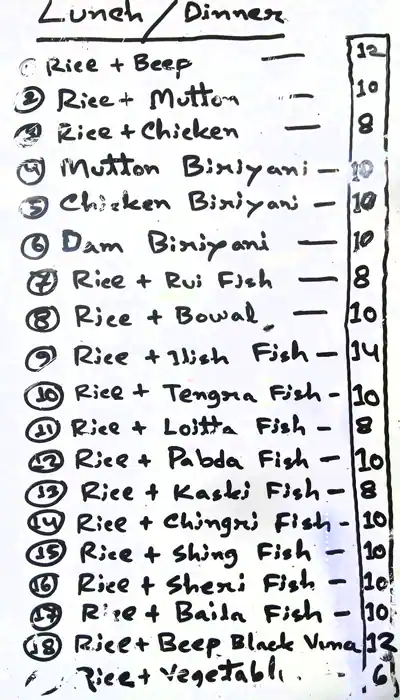 Lunch / Dinner
Rice + Beep — 12
② Rice + Mutton — 10
③ Rice + Chicken — 8
④ Mutton Biriyani — 10
⑤ Chicken Biriyani — 10
⑥ Dam Biriyani — 10
⑦ Rice + Rui Fish — 8
⑧ Rice + Bowal — 10
⑨ Rice + Ilish Fish — 14
⑩ Rice + Tengra Fish - 10
⑪ Rice + Loitta Fish - 8
⑫ Rice + Pabda Fish - 10
⑬ Rice + Kaski Fish - 8
⑭ Rice + Chingri Fish - 10
⑮ Rice + Shing Fish - 10
⑯ Rice + Sheri Fish - 10
⑰ Rice + Baila Fish - 10
⑱ Rice + Beep Black Vuna 12
Rice + Vegetabli - 6